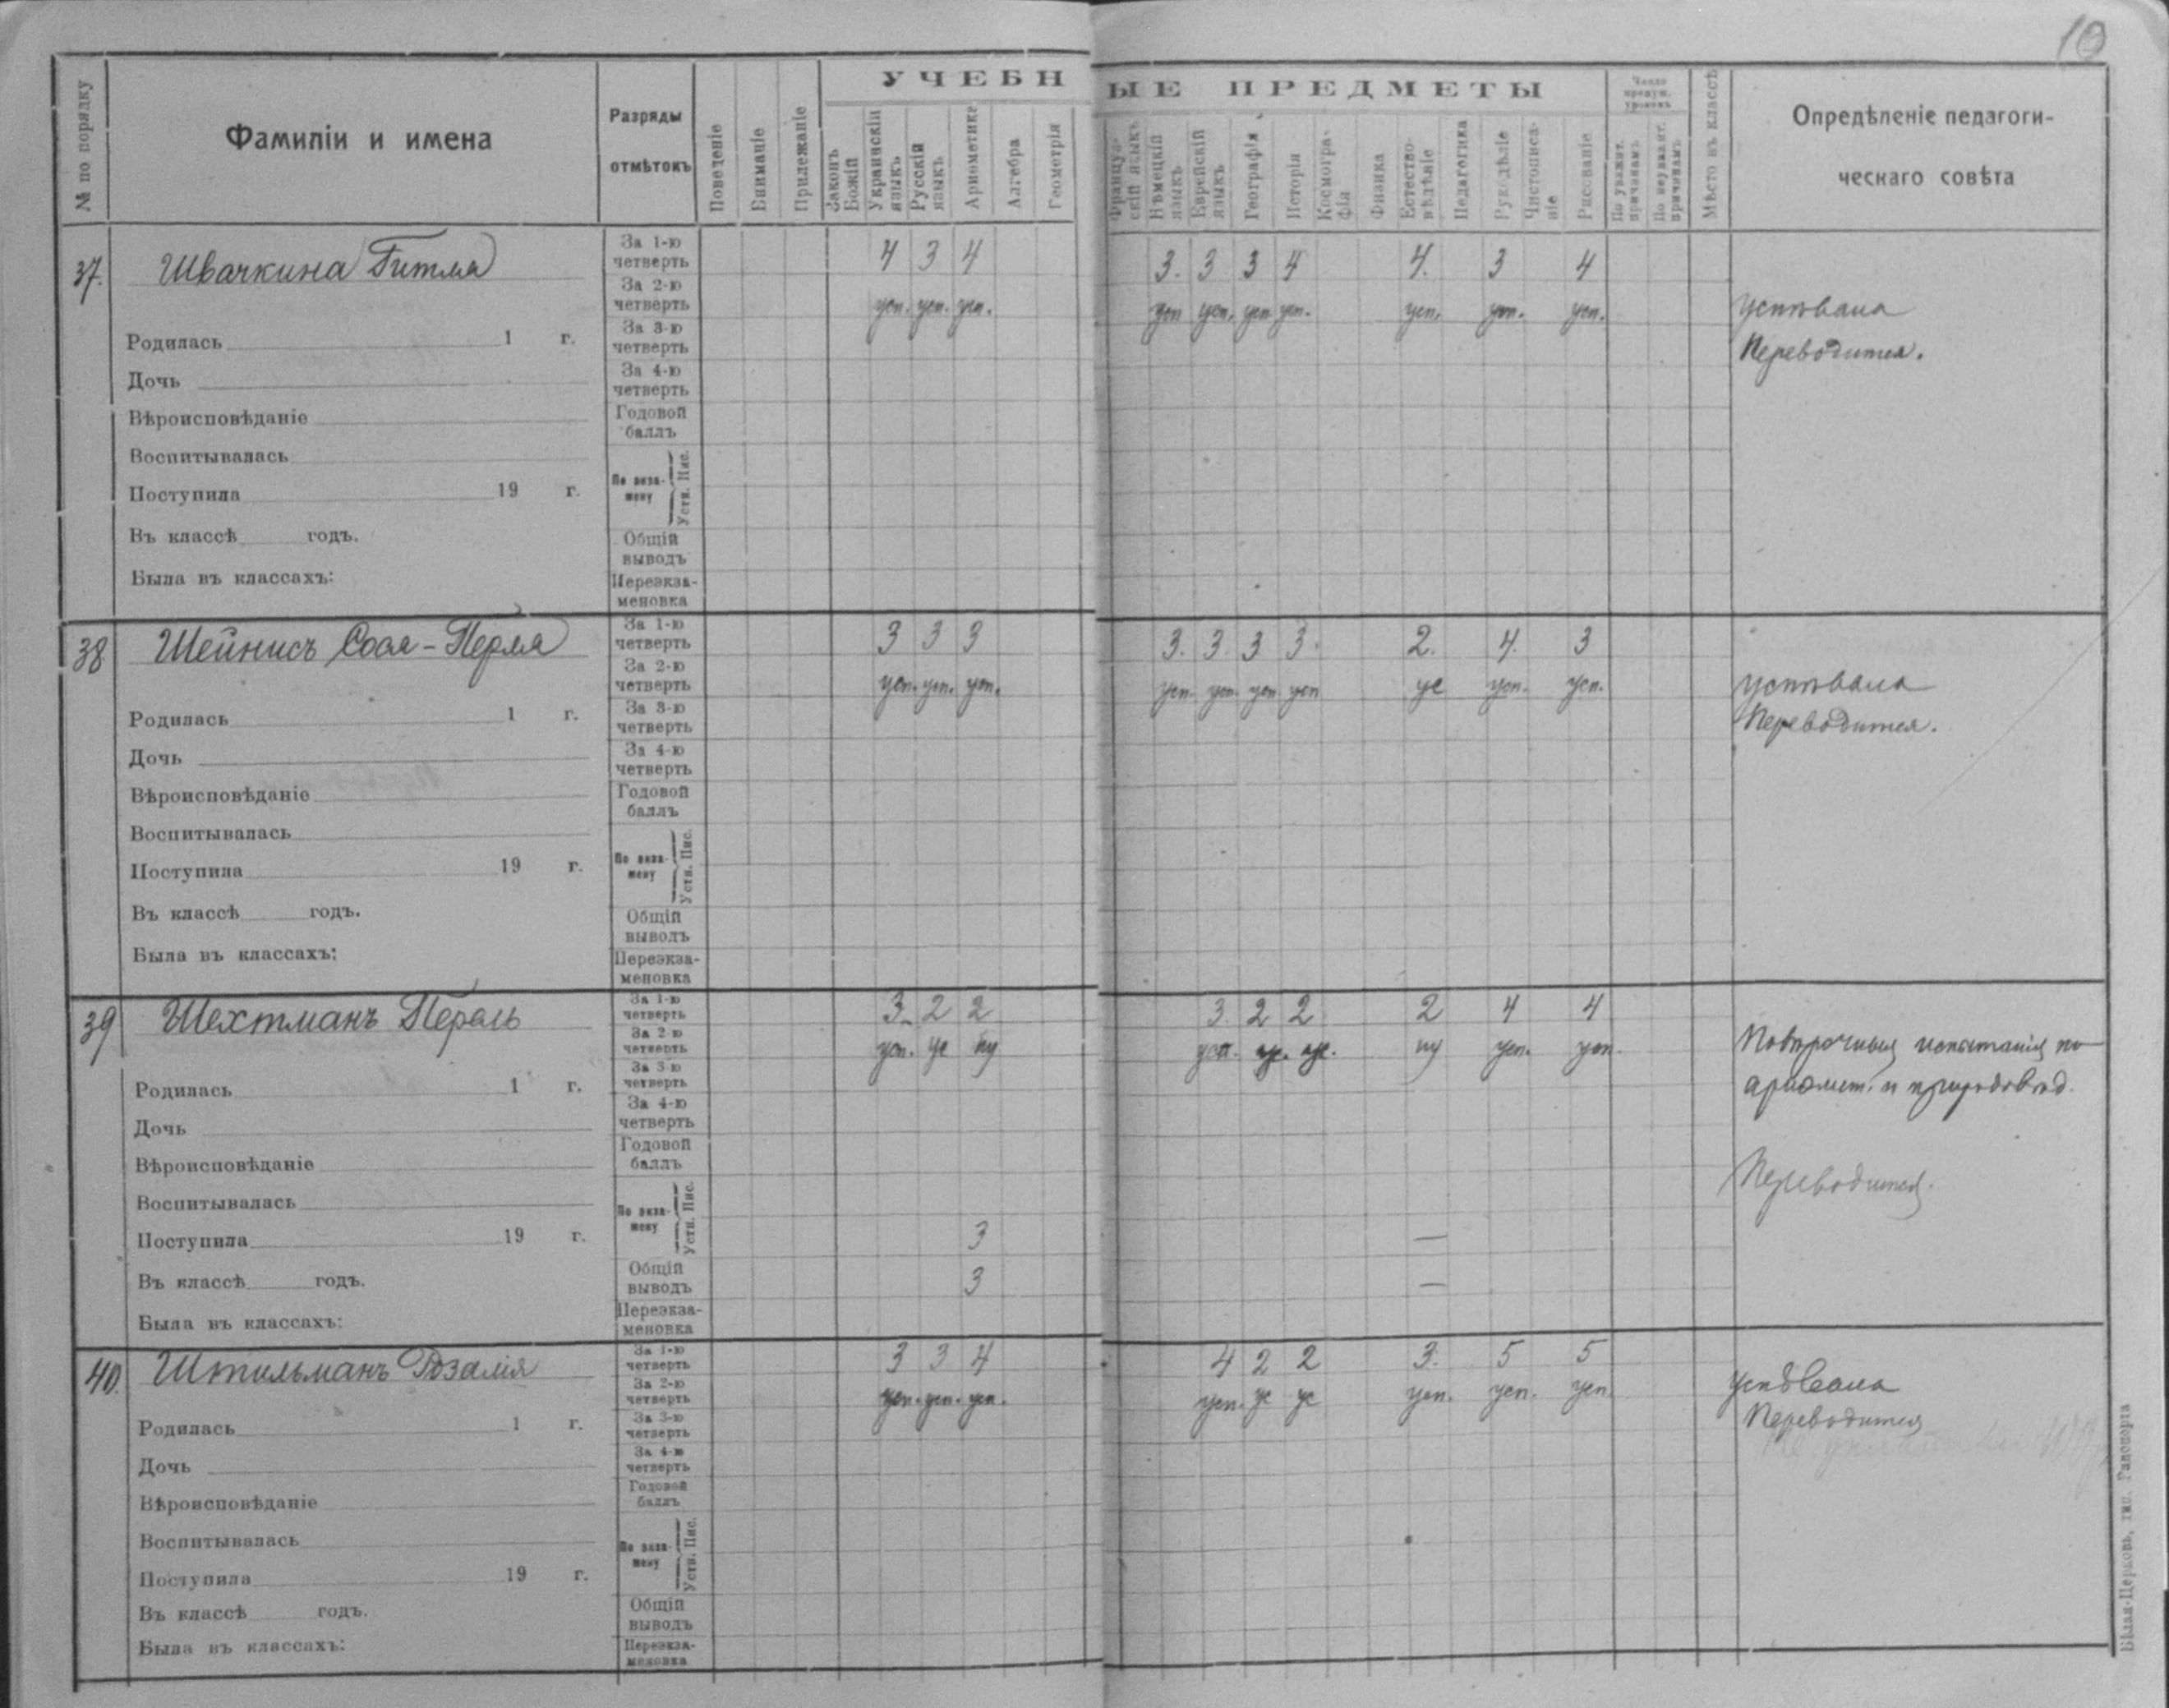 10
УЧЕБНЫЕ ПРЕДМЕТЫ
№ по порядку
Фамиліи и имена
Разряды отмѣтокъ
Поведеніе
Вниманіе
Прилежаніе
Законъ Божій
Украинскій языкъ
Русскій языкъ
Ариѳметика
Алгебра
Геометрія
Француз-скій языкъ
Нѣмецкій языкъ
Еврейскій языкъ
Географія
Исторія
Космогра-фія
Физика
Естество-вѣдѣніе
Педагогика
Рукодѣліе
Чистописа-ніе
Рисованіе
Число пропущ. уроковъ
По уважит. причинамъ
По неуважит. причинамъ
Мѣсто въ классѣ
Опредѣленіе педагоги-
ческаго совѣта
37. Швачкина Гитля
За 1-ю четверть 4 3 4 3. 3 3 4 4. 3 4
За 2-ю четверть усп. усп. усп. усп усп. усп усп. усп. усп. усп.
успѣвала
Переводится.
За 3-ю четверть
Родилась 1 г.
За 4-ю четверть
Дочь
Годовой баллъ
Вѣроисповѣданіе
Воспитывалась
По экза-мену Устн. Пис.
Поступила 19 г.
Въ классѣ годъ.
Общій выводъ
Была въ классахъ:
Переэкза-меновка
38 Шейнисъ Соня-Перля
За 1-ю четверть 3 3 3 3. 3. 3 3. 2. 4. 3
За 2-ю четверть усп. усп. усп. усп. усп. усп усп ус усп. усп.
успѣвала
Переводится.
За 3-ю четверть
Родилась 1 г.
За 4-ю четверть
Дочь
Годовой баллъ
Вѣроисповѣданіе
Воспитывалась
По экза-мену Устн. Пис.
Поступила 19 г.
Въ классѣ годъ.
Общій выводъ
Была въ классахъ:
Переэкза-меновка
39 Шехтманъ Перль
За 1-ю четверть 3 2 2 3. 2 2 2 4 4
За 2-ю четверть усп. ус ну усп. ус. ус. ну усп. усп.
Повѣрочныя испытанія по
ариѳмет. и природовѣд.
Переводится.
За 3-ю четверть
Родилась 1 г.
За 4-ю четверть
Дочь
Годовой баллъ
Вѣроисповѣданіе
Воспитывалась
По экза-мену Устн. Пис. 3 —
Поступила 19 г.
Въ классѣ годъ.
Общій выводъ 3 —
Была въ классахъ:
Переэкза-меновка
40. Штильманъ Розалія
За 1-ю четверть 3 3 4 4 2 2 3. 5 5
За 2-ю четверть усп. усп. усп. усп. ус ус усп. усп. усп.
Успѣвала
Переводится
За 3-ю четверть
Родилась 1 г.
За 4-ю четверть
Дочь
Годовой баллъ
Вѣроисповѣданіе
Воспитывалась
По экза-мену Устн. Пис.
Поступила 19 г.
Въ классѣ годъ.
Общій выводъ
Была въ классахъ:
Переэкза-меновка
Бѣлая-Церковь, тип. Рапопорта